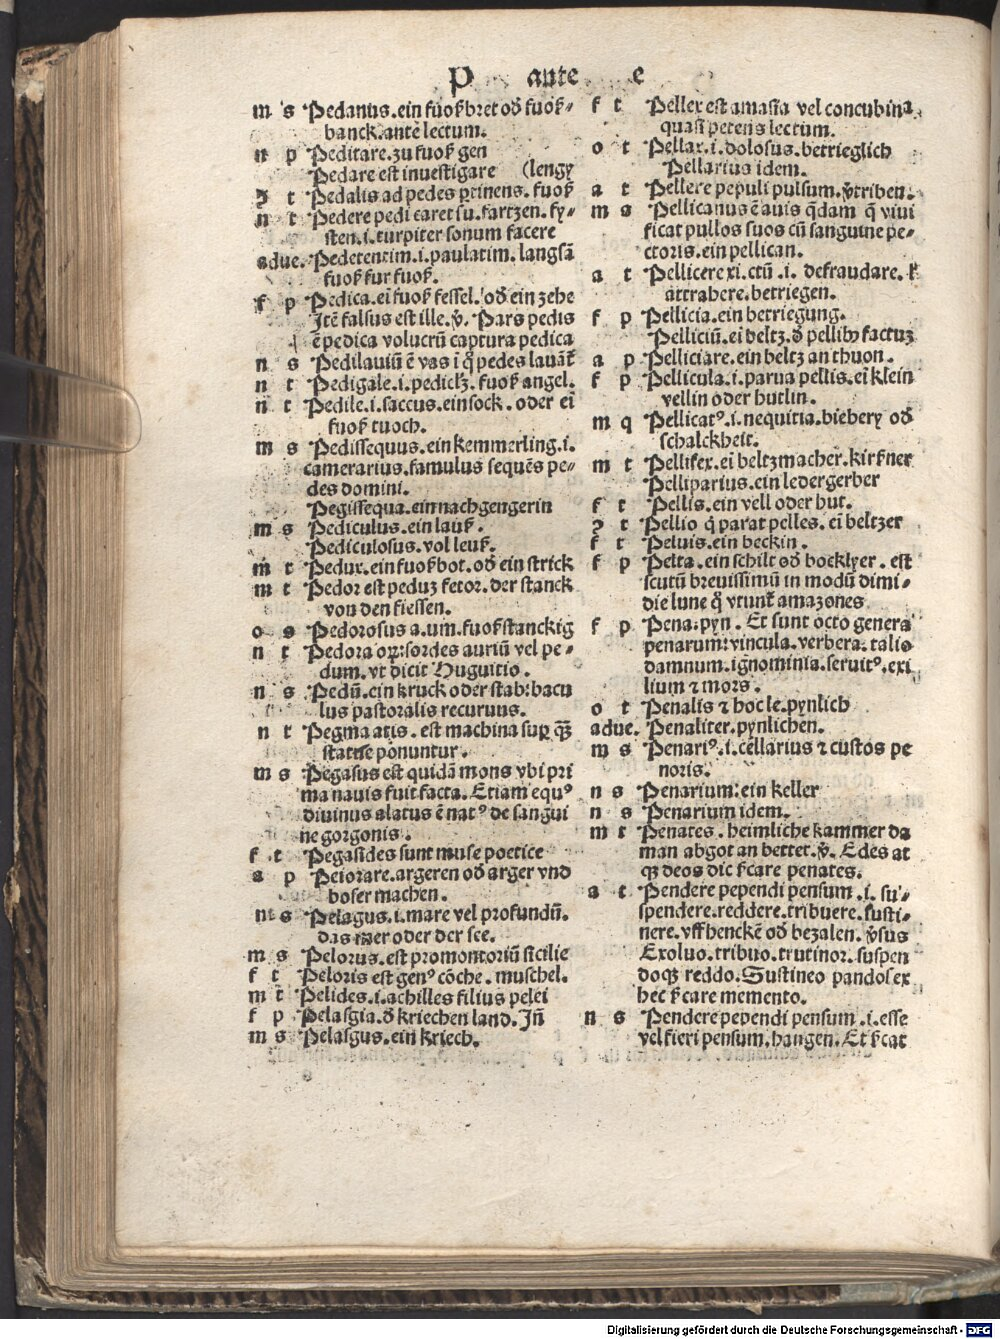 P ante e
m s Pedanus.ein fuoßbret oď fuoß-
banck.antē lectum.
n p Peditare.zu fuoß gen
Pedare est inuestigare (lengy
ꝫ t Pedalis ad pedes ꝑtinens. fuoß
n t Pedere pedi caret su. fartzen. fy-
sten.i.turpiter sonum facere
adue. Pedetentim.i.paulatim. langsā
fuoß fur fuoß.
f p Pedica.ei fuoß fessel. oď ein zehe
Itē falsus est ille. ꝟ. Pars pedis
ē pedica volucrū captura pedica
n s Pedilauiū ē vas ī q̊ pedes lauāt̄
n t Pedigale.i.pedichz. fuoß angel.
n t Pedile.i.saccus.ein sock. oder ei
fuoß tuoch.
m s Pedissequus.ein kemmerling.i.
camerarius.famulus sequēs pe-
des domini.
Pegissequa.ein nachgengerin
m s Pediculus.ein lauß.
Pediculosus.vol leuß.
m t Pedux.ein fuoßbot.oď ein strick
m t Pedor est peduꝫ fetor.der stanck
von den fiessen.
o s Pedorosus a.um.fuoßstanckig
n t Pedora oꝝ:sordes auriū vel pe-
dum.vt dicit Huguitio.
n s Pedū.ein kruck oder stab:bacu
lus pastoralis recuruus.
n t Pegma atis. est machina suꝑ quā
statue ponuntur.
m s Pegasus est quidā mons vbi pri
ma nauis fuit facta. Etiam equꝰ
diuinus alatus ē natꝰ de sangui
ne gorgonis.
f t Pegasides sunt muse poetice
a p Peiorare.argeren oď arger vnd
boser machen.
m s Pelagus.i.mare vel profundū.
das mer oder der see.
m s Pelorus.est promontoriū sicilie
f t Peloris est genꝰ cōche. muschel.
m t Pelides.i.achilles filius pelei
f p Pelasgia.ď kriechen land. Iñ
m s Pelasgus.ein kriech.
f t Pellex est amasia vel concubina
quasi petens lectum.
o t Pellax.i.dolosus.betrieglich
Pellarius idem.
a t Pellere pepuli pulsum.ꝟtriben.
m s Pellicanus ē auis q̄dam q̄ viui
ficat pullos suos cū sanguine pe-
ctoris.ein pellican.
a t Pellicere xi.ctū.i. defraudare. ł
attrahere.betriegen.
f p Pellicia.ein betriegung.
Pelliciū.ei beltz.ď pellibꝫ factuꝫ
a p Pelliciare.ein beltz an thuon.
f p Pellicula.i.parua pellis.ei klein
vellin oder hutlin.
m q Pellicatꝰ.i.nequitia.biebery oď
schalckheit.
m t Pellifex.ei beltzmacher.kirßner
Pelliparius.ein ledergerber
f t Pellis.ein vell oder hut.
ꝫ t Pellio q̄ parat pelles. ei beltzer
f t Peluis.ein beckin.
f p Pelta.ein schilt oď bocklyer. est
scutū breuissimū in modū dimi-
die lune q̊ vtunt̄ amazones
f p Pena.pyn. Et sunt octo genera
penarum:vincula.verbera.talio
damnum.ignominia.seruitꝰ.exi
lium ⁊ mors.
o t Penalis ⁊ hoc le.pynlich
adue. Penaliter.pynlichen.
m s Penariꝰ.i.cellarius ⁊ custos pe
noris.
n s Penarium:ein keller
n s Penarium idem.
m t Penates. heimliche kammer da
man abgot an bettet.ꝟ. Edes at
qꝫ deos dic ẜcare penates.
a t Pendere pependi pensum.i. su-
spendere.reddere.tribuere.susti-
nere.vffhenckē oď bezalen. ꝟsus
Exoluo.tribuo.trutinor.suspen
doqꝫ reddo.Sustineo pando sex
hec ẜcare memento.
n s Pendere pependi pensum.i.esse
vel fieri pensum.hangen. Et ẜcat
Digitalisierung gefördert durch die Deutsche Forschungsgemeinschaft - DFG